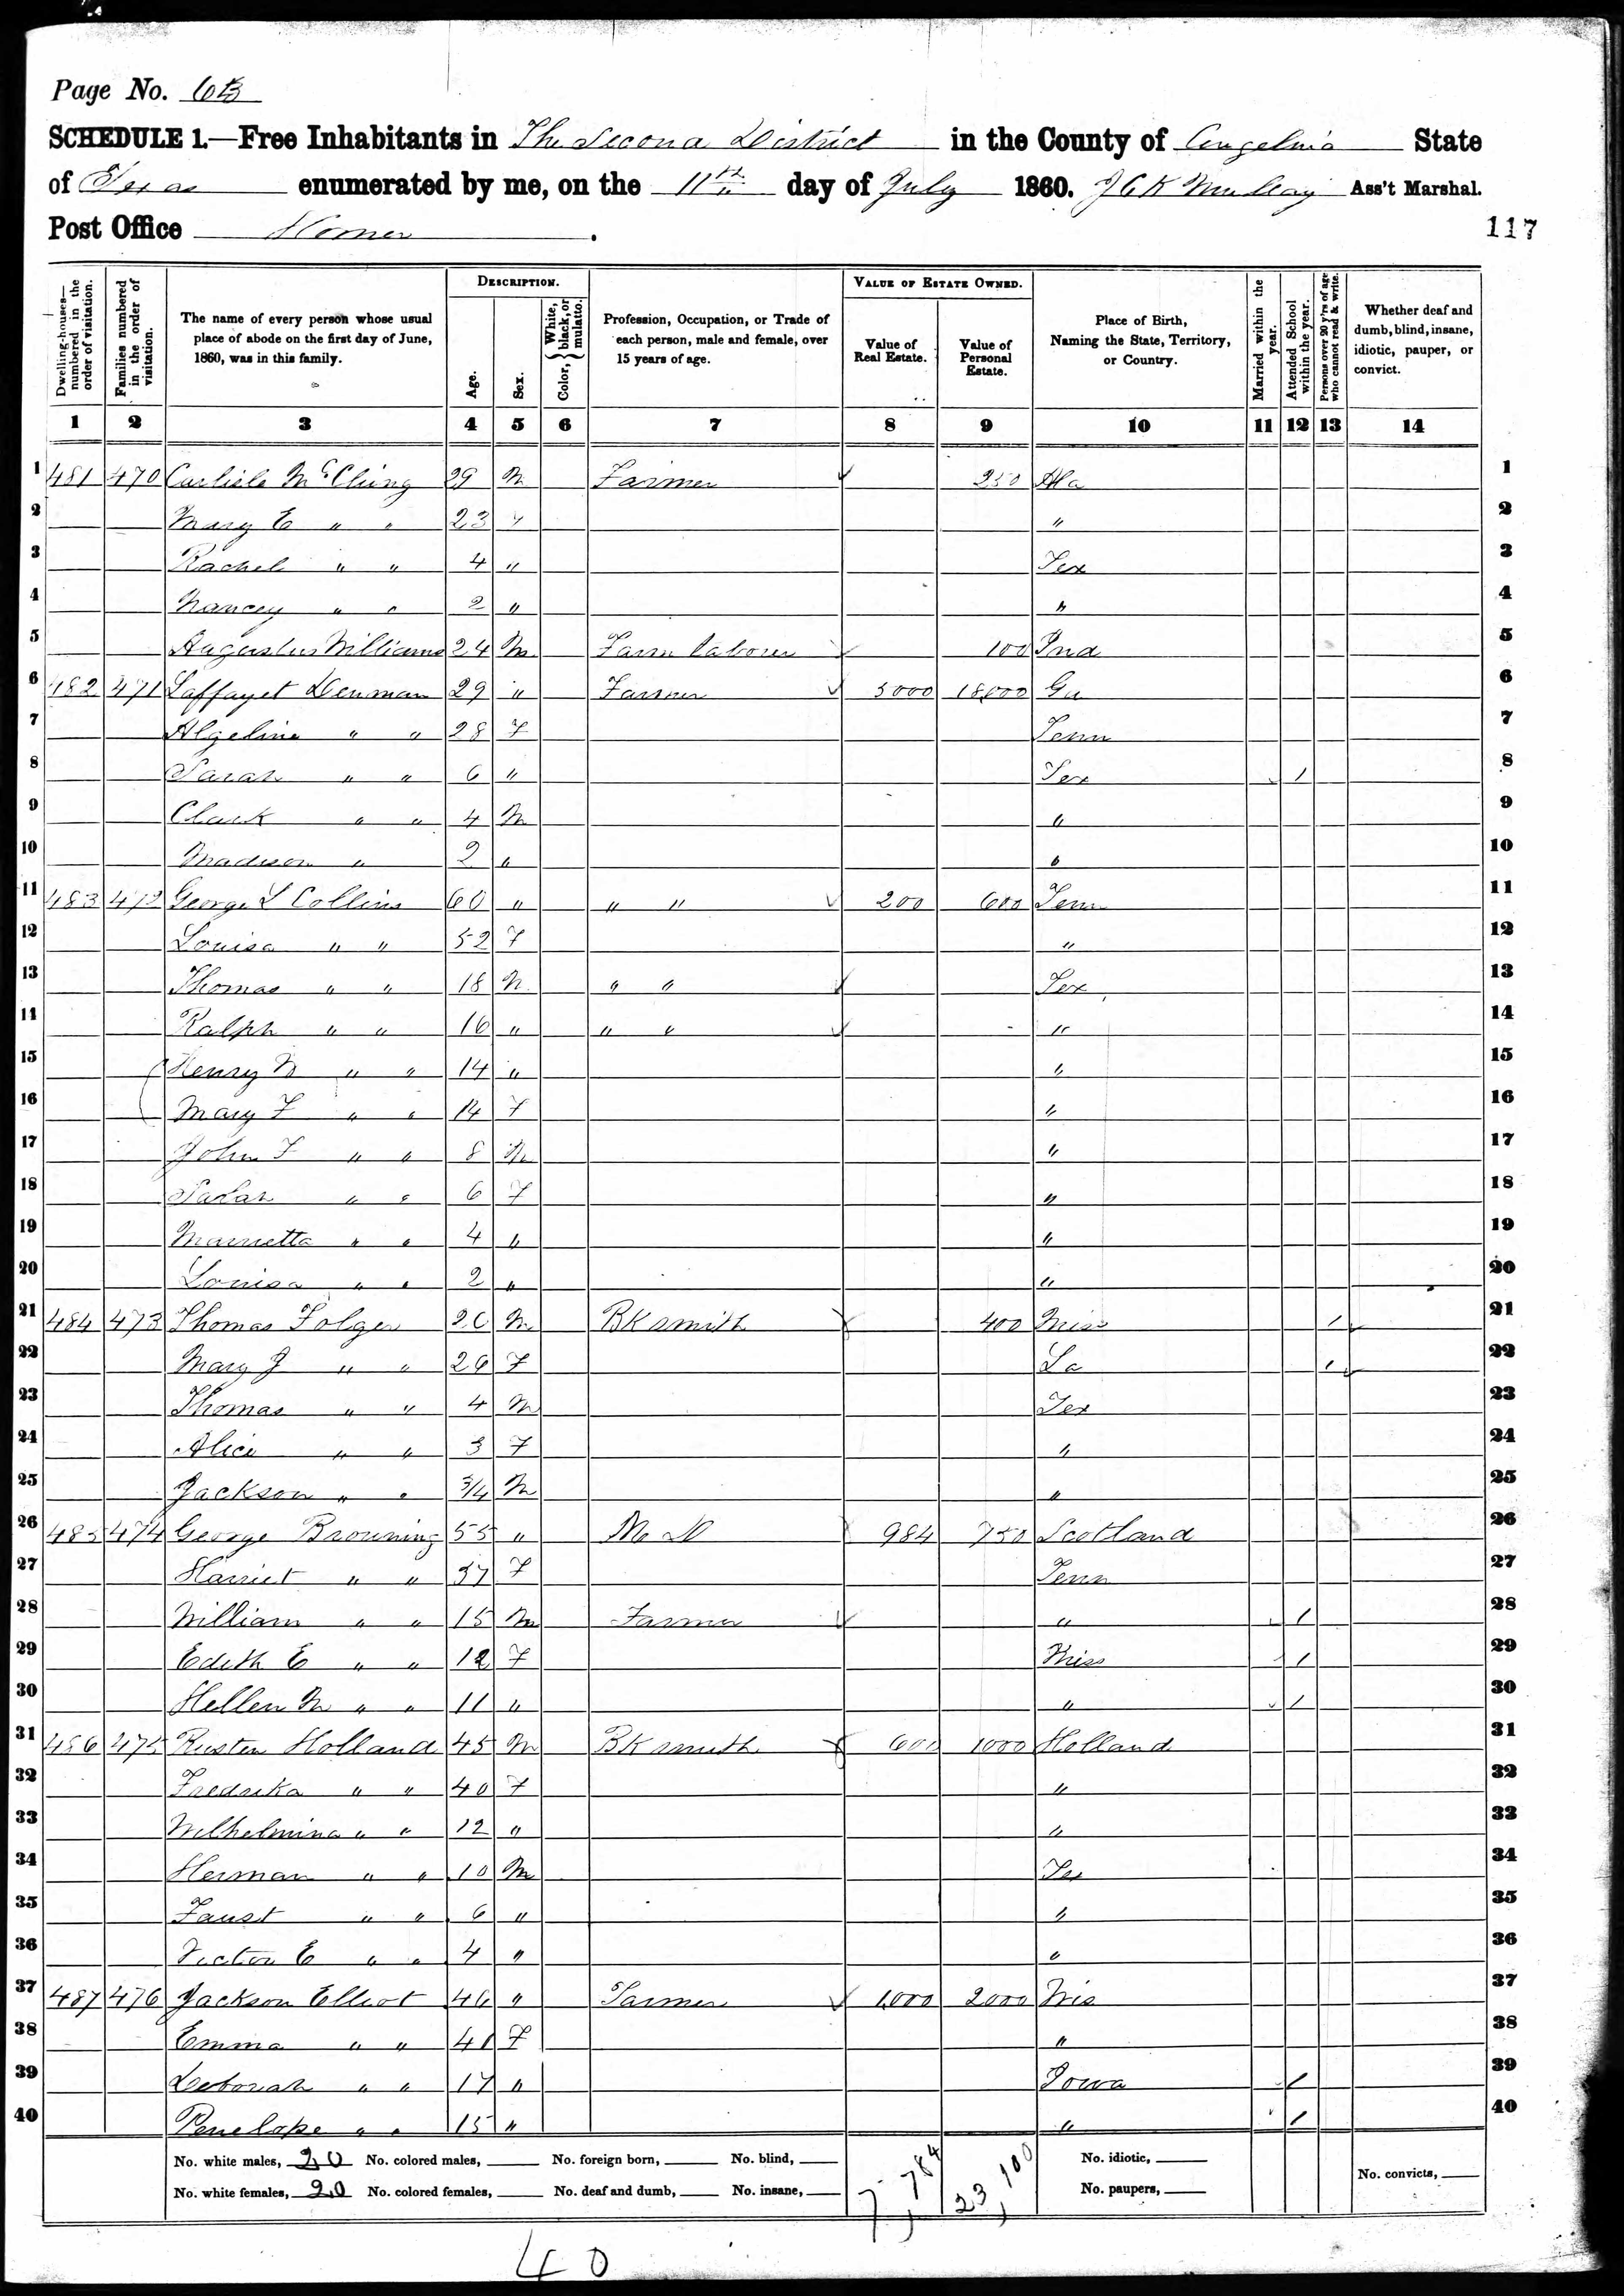 Page No. 63
SCHEDULE 1.—Free Inhabitants in The Second District in the County of Angelina State
of Texas enumerated by me, on the 11th day of July 1860. Ass't Marshal.
Post Office Homer .
117
Dwelling-houses—numbered in the order of visitation.
Families numbered in the order of visitation.
The name of every person whose usual place of abode on the first day of June, 1860, was in this family.
DESCRIPTION.
Age.
Sex.
Color, { White, black, or mulatto.
Profession, Occupation, or Trade of each person, male and female, over 15 years of age.
VALUE OF ESTATE OWNED.
Value of Real Estate.
Value of Personal Estate.
Place of Birth, Naming the State, Territory, or Country.
Married within the year.
Attended School within the year.
Persons over 20 y'rs of age who cannot read & write.
Whether deaf and dumb, blind, insane, idiotic, pauper, or convict.
1 2 3 4 5 6 7 8 9 10 11 12 13 14
1 481 470 Carlisle McCling 29 M Farmer 250 Ala 1
2 Mary E " " 23 " 2
3 Rachel " " 4 " Tex 3
4 Nancey " " 2 " " 4
5 Augustus Williams 24 M Farm laborer 100 Ind 5
6 482 471 Laffayet Denman 29 " Farmer 5000 18,000 Ga 6
7 Algeline " " 28 F Tenn 7
8 Sarah " " 6 " Tex / 8
9 Clark " " 4 M " 9
10 Madison " 2 " " 10
11 483 472 George L Collins 60 " " " 200 600 Tenn 11
12 Louisa " " 52 F " 12
13 Thomas " " 18 M " " Tex 13
14 Ralph " " 16 " " " " 14
15 Henry " " 14 " " 15
16 Mary F " " 14 F " 16
17 John F " " 8 M " 17
18 Sarah " " 6 F " 18
19 Marietta " " 4 " " 19
20 Louisa " " 2 " " 20
21 484 473 Thomas Folger 26 M BKsmith 400 Miss / 21
22 Mary J " " 26 F La / 22
23 Thomas " " 4 M Tex 23
24 Alice " " 3 F " 24
25 Jackson " " 3/4 M " 25
26 485 474 George Browning 55 " M D 984 750 Scotland 26
27 Harriet " " 37 F Tenn 27
28 William " " 15 M Farmer " / 28
29 Edith E " " 12 F Miss / 29
30 Hellen M " " 11 " " / 30
31 486 475 Rusten Holland 45 M BKsmith 600 1000 Holland 31
32 Fredrika " " 40 F " 32
33 Wilhelmina " " 12 " " 33
34 Herman " " 10 M Tex 34
35 Faust " " 6 " " 35
36 Victor E " " 4 " " 36
37 487 476 Jackson Elliot 46 " Farmer 1,000 2000 Wis 37
38 Emma " " 41 F " 38
39 Deborah " " 17 " Iowa / 39
40 Penelope " " 15 " " / 40
No. white males, 20 No. colored males, No. foreign born, No. blind, No. idiotic,
No. white females, 20 No. colored females, No. deaf and dumb, No. insane, No. paupers, No. convicts,
7,784 23,100
40